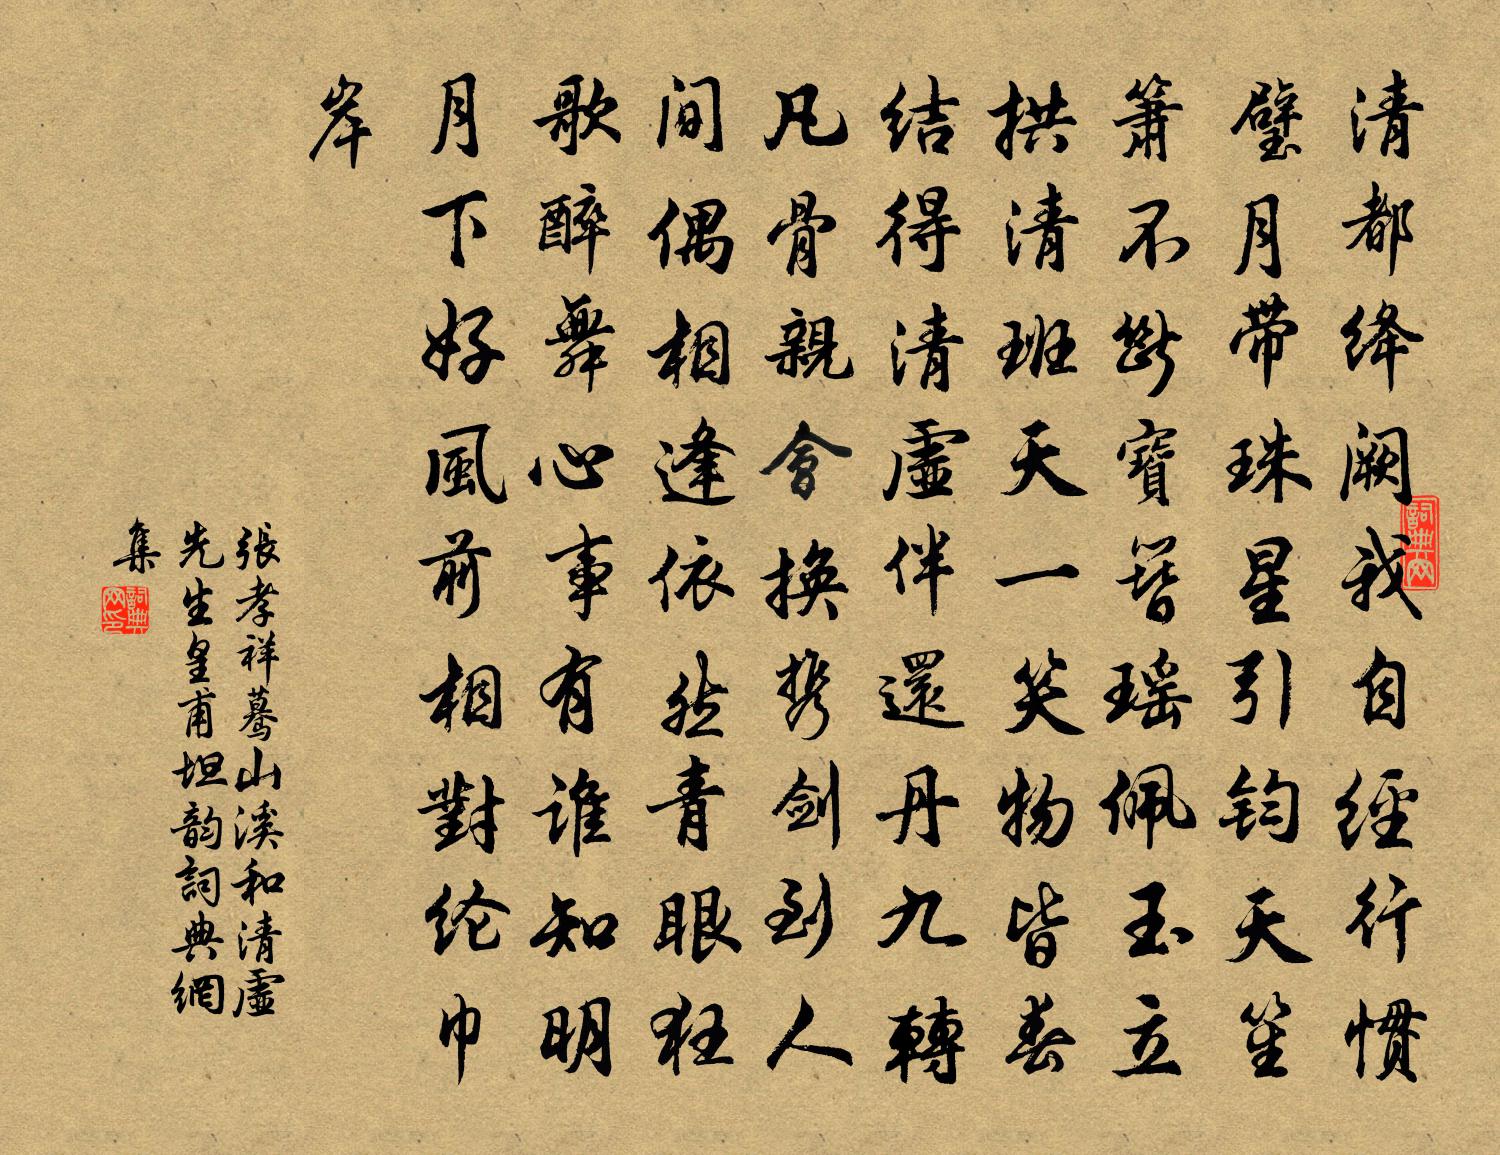 清都绛阙我自經行慣
璧月带珠星引钧天笙
簫不斷寶簪瑶佩玉立
拱清班天一笑物皆春
结得清虛伴還丹九轉
凡骨親會换携剑到人
间偶相逢依然青眼狂
歌醉舞心事有谁知明
月下好風前相對纶巾
岸
張孝祥蓦山溪和清虛
先生皇甫坦韵詞典網
集
詞典网
詞典网印